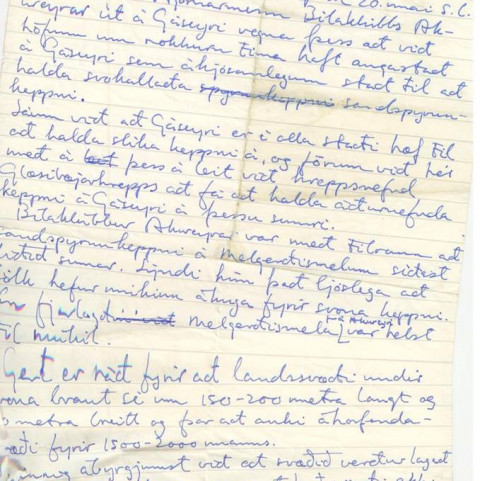 20. maí s.l.
stjórnarmenn Bílaklúbbs Ak-
ureyrar út á Gáseyri vegna þess að við
höfum um nokkurn tíma haft augastað
á Gáseyri sem ákjósanlegum stað til að
halda svokallaða sandspyrnu-
keppni.
Sáum við að Gáseyri er í alla staði hæf til
að halda slíka keppni á, og förum við hér
með á þess á leit við hreppsnefnd
Glæsibæjarhrepps að fá að halda áðurnefnda
keppni á Gáseyri á þessu sumri.
Bílaklúbbur Akureyrar var með tilraun að
sandspyrnukeppni á melgerðismelum síðast
liðið sumar. Sýndi hún það ljóslega að
fólk hefur mikinn áhuga fyrir svona keppni.
fjarlægð melgerðismela frá Akureyri var helst
til mikil.
Gert er ráð fyrir að landssvæði undir
svona braut sé um 150-200 metra langt og
metra breitt og þar að auki áhorfenda-
svæði fyrir 1500-2000 manns.
ábyrgjumst við að svæðið verður lagað